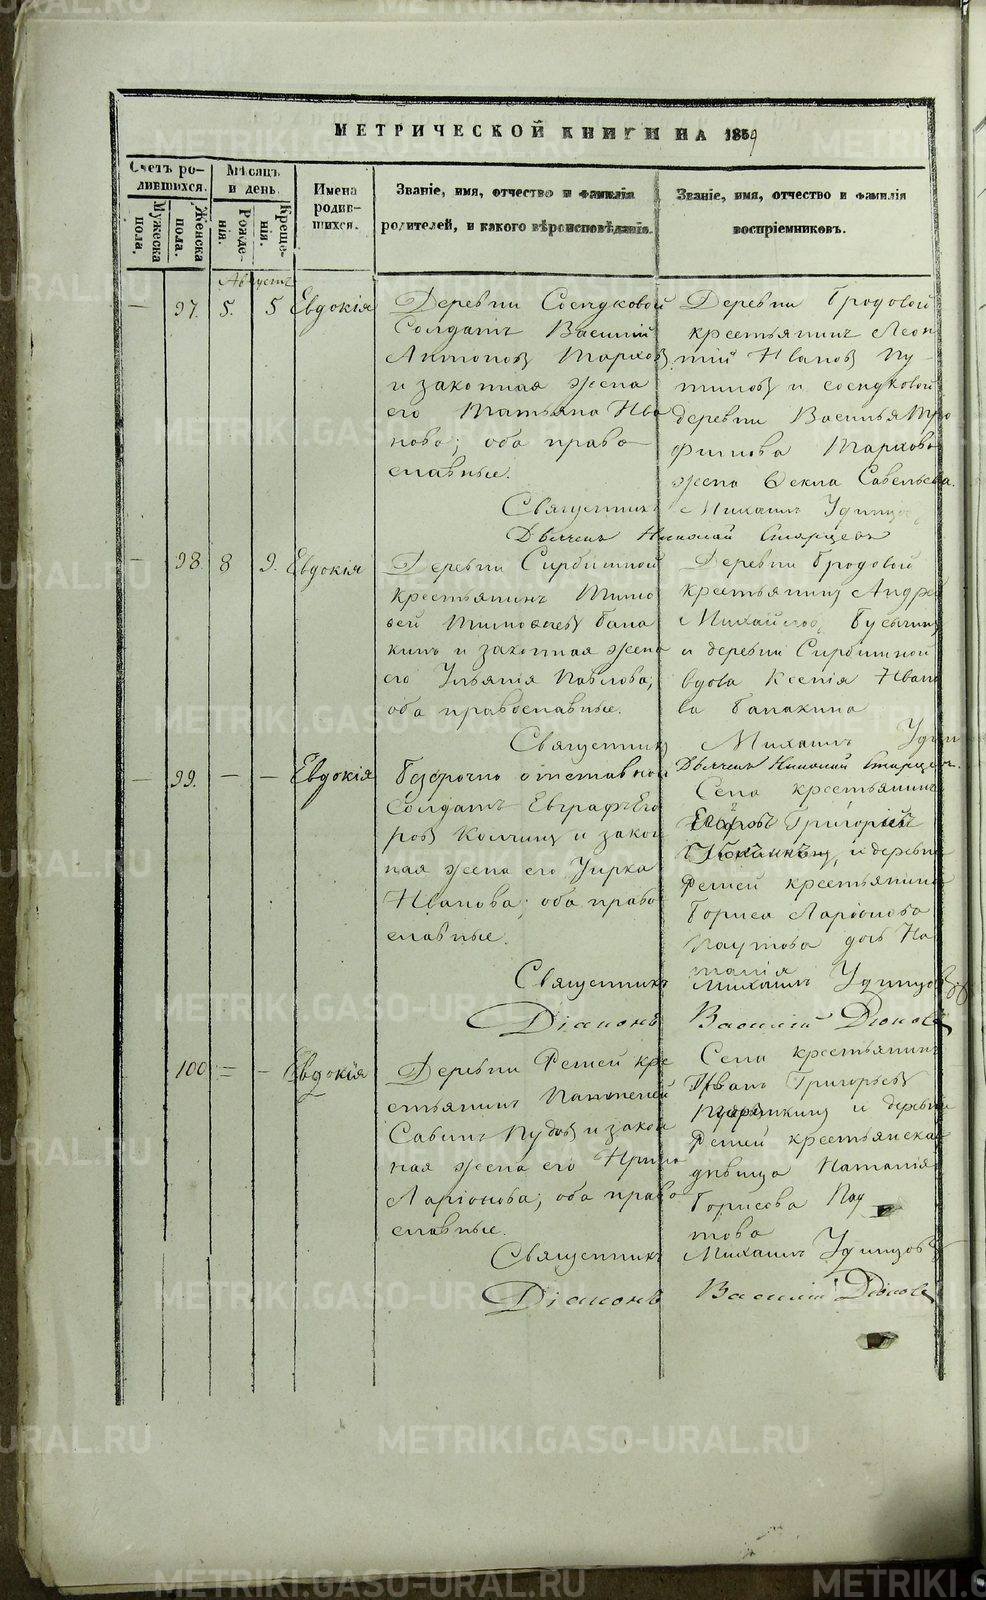 МЕТРИЧЕСКОЙ КНИГИ НА 1859
Счетъ ро-
дившихся.
Мужеска
пола.
Женска
пола.
Мѣсяцъ
и день.
Рожде-
нія.
Креще-
нія.
Имена
родив-
шихся.
Званіе, имя, отчество и фамилія
родителей, и какого вѣроисповѣданія.
Званіе, имя, отчество и фамилія
воспріемниковъ.
Августъ
— 97. 5. 5 Евдокія
Деревни Соснуковой
Солдатъ Василій
Антоновъ Тарховъ
и законная жена
его Татьяна Ива
нова; оба право
славные.
Деревни Бродовой
крестьянинъ Леон
тій Ивановъ Пу-
тиловъ и соснуковой
деревни Василья Тро
фимова Тархова
жена Ѳекла Савельева.
Священникъ Михаилъ Удинцовъ
Дьячекъ Николай Старцевъ
— 98. 8 9. Евдокія
Деревни Сирбишной
крестьянинъ Тимо
ѳей Тимоѳеевъ Бана
кинъ и законная жена
его Ульянія Павлова;
оба православные.
Деревни Бродовой
крестьянинъ Андрей
Михайловъ
и деревни Сирбишной
вдова Ксенія Ивано
ва Банакина
Священникъ Михаилъ Удин
Дьячекъ Николай Старцевъ.
— 99. — — Евдокія
Безсрочно отставной
Солдатъ Евграфъ Его
ровъ и закон
ная жена его
Иванова; оба право
славные.
Села крестьянинъ
Григорій
и деревни
Фетей крестьянина
Бориса Ларіонова
Паутова дочь На
талія
Священникъ Михаилъ Удинцовъ
Діаконъ Василій Діоновъ
100 = — Евдокія
Деревни Фетей кре
стьянинъ Пантелей
Савинъ Пудовъ и закон
ная жена его Ирина
Ларіонова; оба право
славные.
Села крестьянинъ
Иванъ Григорьевъ
и деревни
Фетей крестьянская
дѣвица Наталія
Борисова Пау
това
Священникъ Михаилъ Удинцовъ
Діаконъ Василій Діоновъ
METRIKI.GASO-URAL.RU